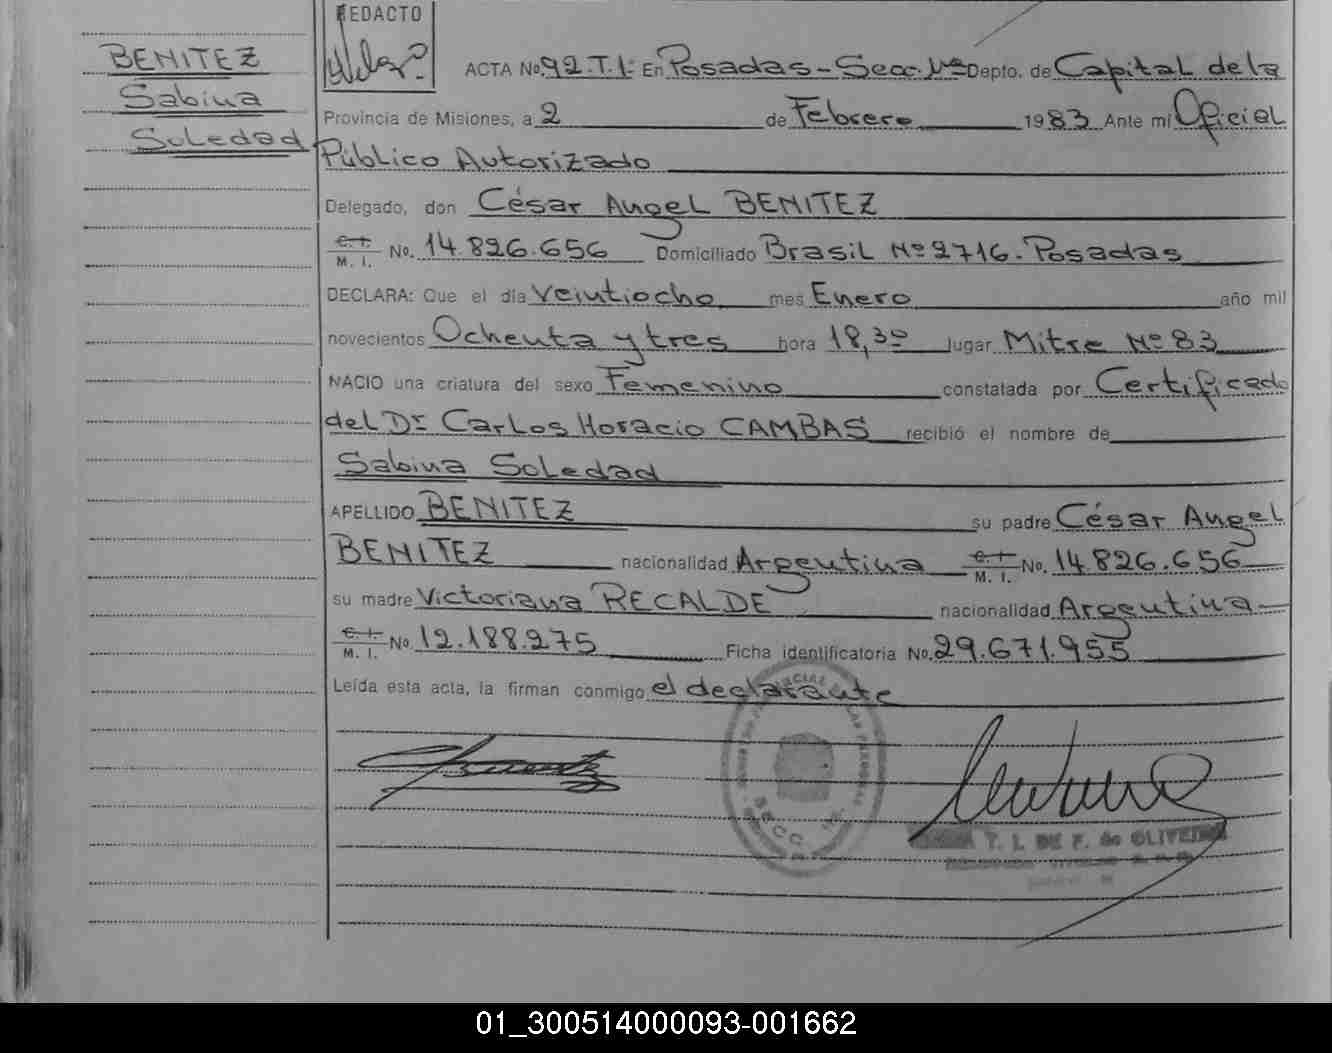 BENITEZ
Sabina
Soledad
REDACTO
ACTA No. 92.T.I: En Posadas - Secc. 1ra Depto. de Capital de la
Provincia de Misiones, a 2 de Febrero 1983 Ante mi Oficial
Público Autorizado
Delegado, don César Angel BENITEZ
C.I. M. I. No. 14.826.656 Domiciliado Brasil Nº 2716. Posadas
DECLARA: Que el día Veintiocho mes Enero año mil
novecientos Ochenta y tres hora 18,30 lugar Mitre Nº 83
NACIO una criatura del sexo Femenino constatada por Certificado
del Dr Carlos Horacio CAMBAS recibió el nombre de
Sabina Soledad
APELLIDO BENITEZ su padre César Angel
BENITEZ nacionalidad Argentina C.I. M. I. No. 14.826.656
su madre Victoriana RECALDE nacionalidad Argentina
C.I. M. I. No 12.188.275 Ficha identificatoria No. 29.671.955
Leída esta acta, la firman conmigo el declarante
SECC.
T. I. DE F. de OLIVEIRA
01_300514000093-001662